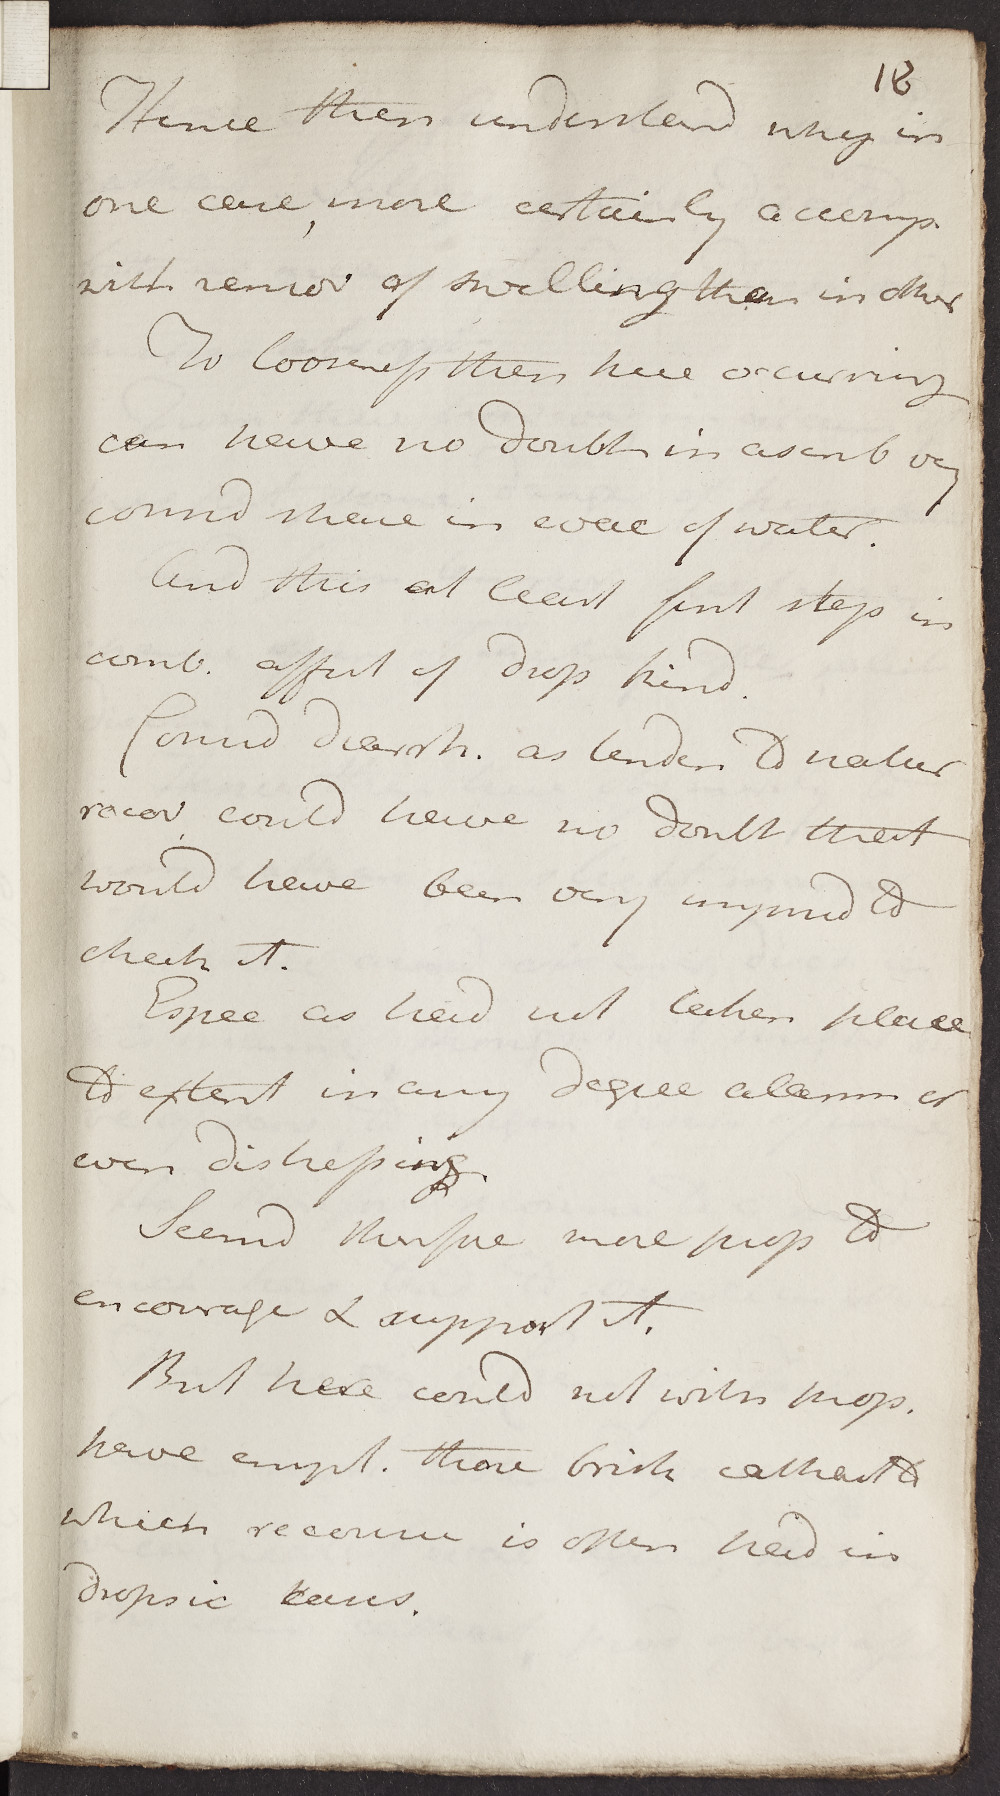 18
Hence then understand why in
one case, more certainly accomp.
with remov of swelling than in other
To looseness then here occurring
can have no doubt in ascrib very
consid share in evac of water.
And this at least first step in
comb. affect of drop kind.
Consid diarrh. as tendin to natur
recov. could have no doubt that
would have been very imprud to
check it.
Espec as had not taken place
to extent in any degree alarm or
even distressing.
Seemd therfore more prop to
encourage & support it.
But here could not with prop.
have empl. those brisk cathart to
which recourse is often had in
dropsic cases.